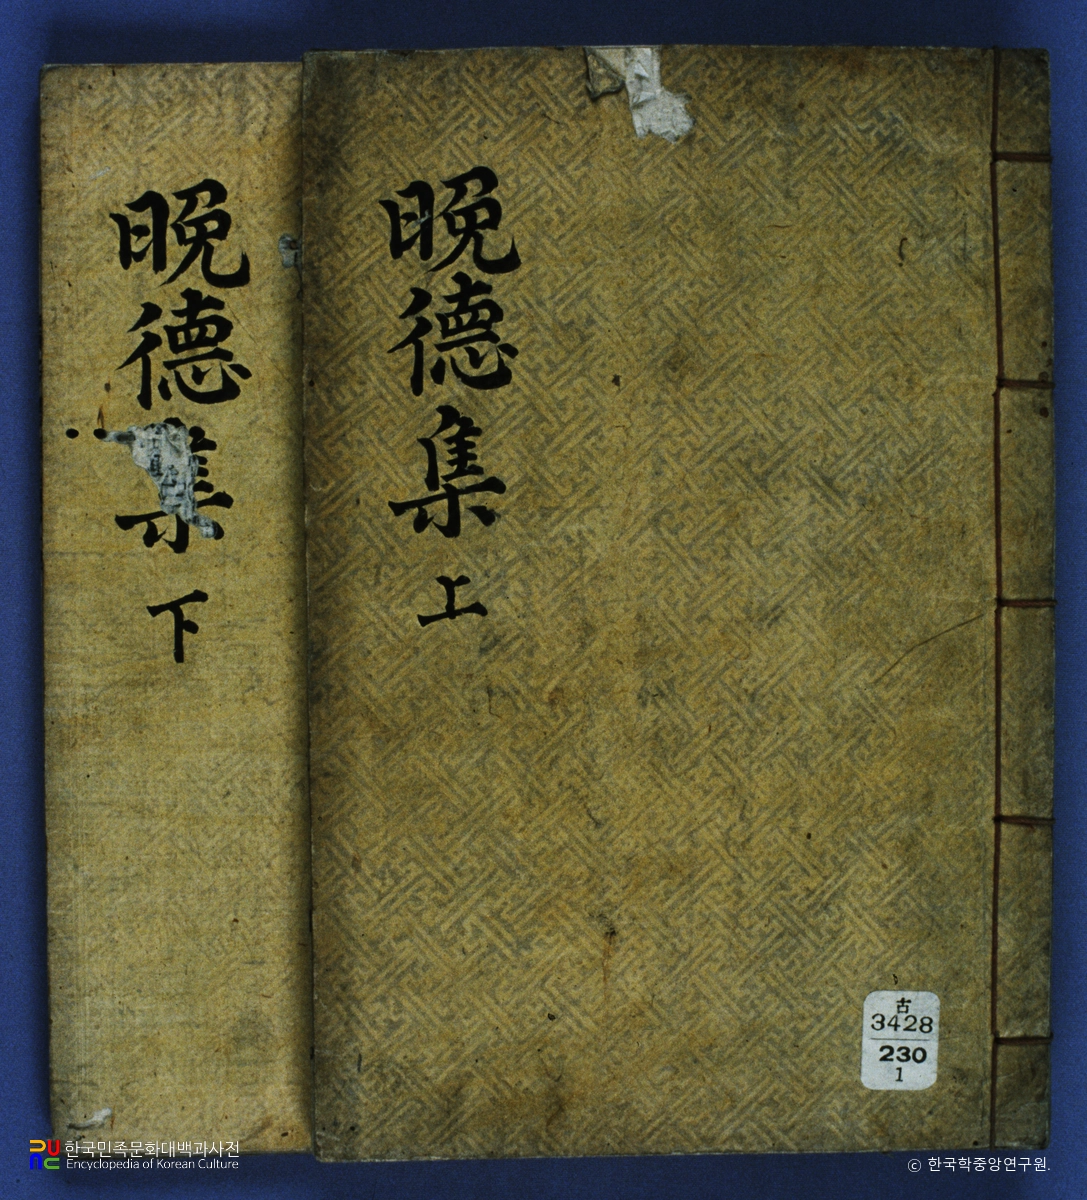 晩德集
上
晩德集
下
古
3428
230
1
한국민족문화대백과사전
Encyclopedia of Korean Culture
ⓒ 한국학중앙연구원.